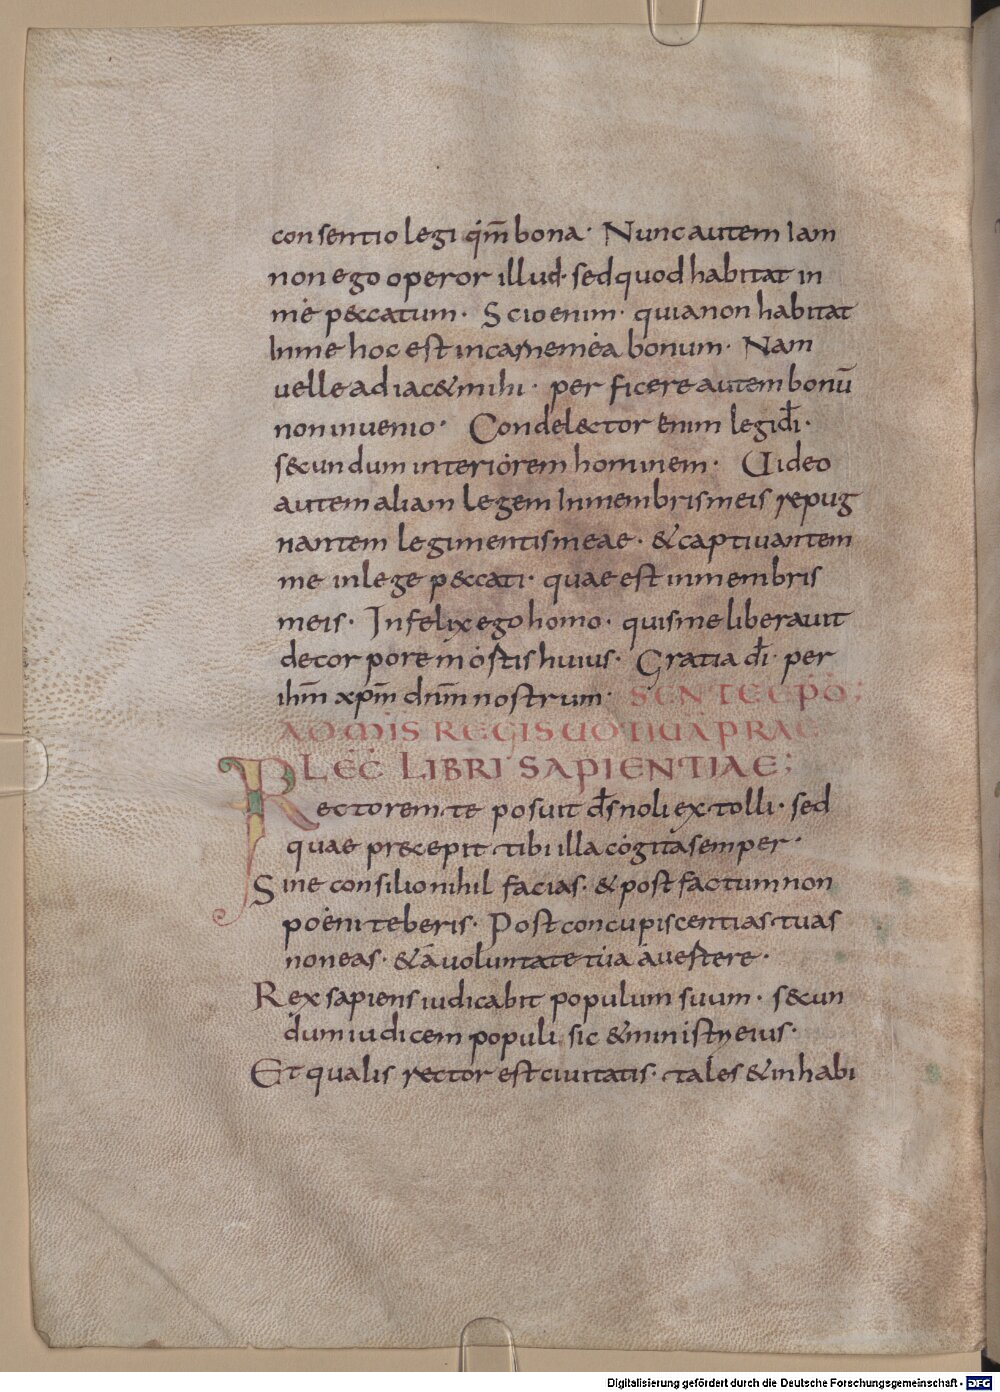 consentio legi qm̄ bona· Nunc autem Iam
non ego operor illud· sed quod habitat in
me peccatum· Scio enim· quia non habitat
In me hoc est in carne mea bonum· Nam
uelle adiac& mihi· perficere autem bonū
non inuenio· Condelector enim legi dī·
secundum interiorem hominem· Uideo
autem aliam legem In membris meis repug
nantem legi mentis meae· & captiuantem
me in lege peccati· quae est in membris
meis· Infelix ego homo· quis me liberauit
de corpore mortis huius· Gratia dī· per
ihm̄ xpm̄ dnm̄ nostrum·
LEC̄ LIBRI SAPIENTIAE;
Rectorem te posuit ds̄ noli extolli· sed
quae precepit tibi illa cogita semper·
Sine consilio nihil facias· & post factum non
poeniteberis· Post concupiscentias tuas
non eas· & a uoluntate tua auertere·
Rex sapiens iudicabit populum suum· secun
dum iudicem populi sic & ministri eius·
Et qualis rector est ciuitatis· tales & inhabi
Digitalisierung gefördert durch die Deutsche Forschungsgemeinschaft - DFG